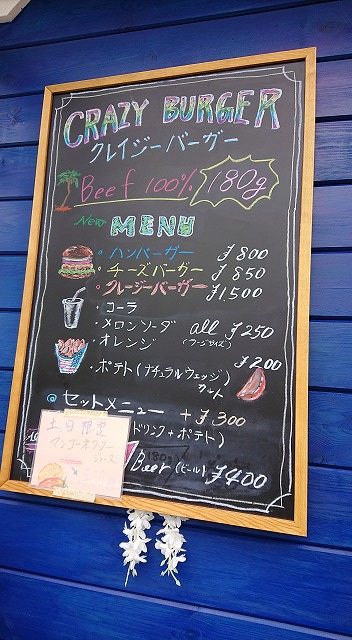 CRAZY BURGER
クレイジーバーガー
Beef 100% 180g
New MENU
・ハンバーガー ¥800
・チーズバーガー ¥850
・クレージーバーガー ¥1,500
・コーラ
・メロンソーダ all ¥250
・オレンジ (ラージサイズ)
・ポテト(ナチュラルウェッジ) ¥200
カット
@セットメニュー +¥300
ドリンク+ポテト)
土日限定
マンゴーネクター
ジュース
Beer(ビール) ¥400